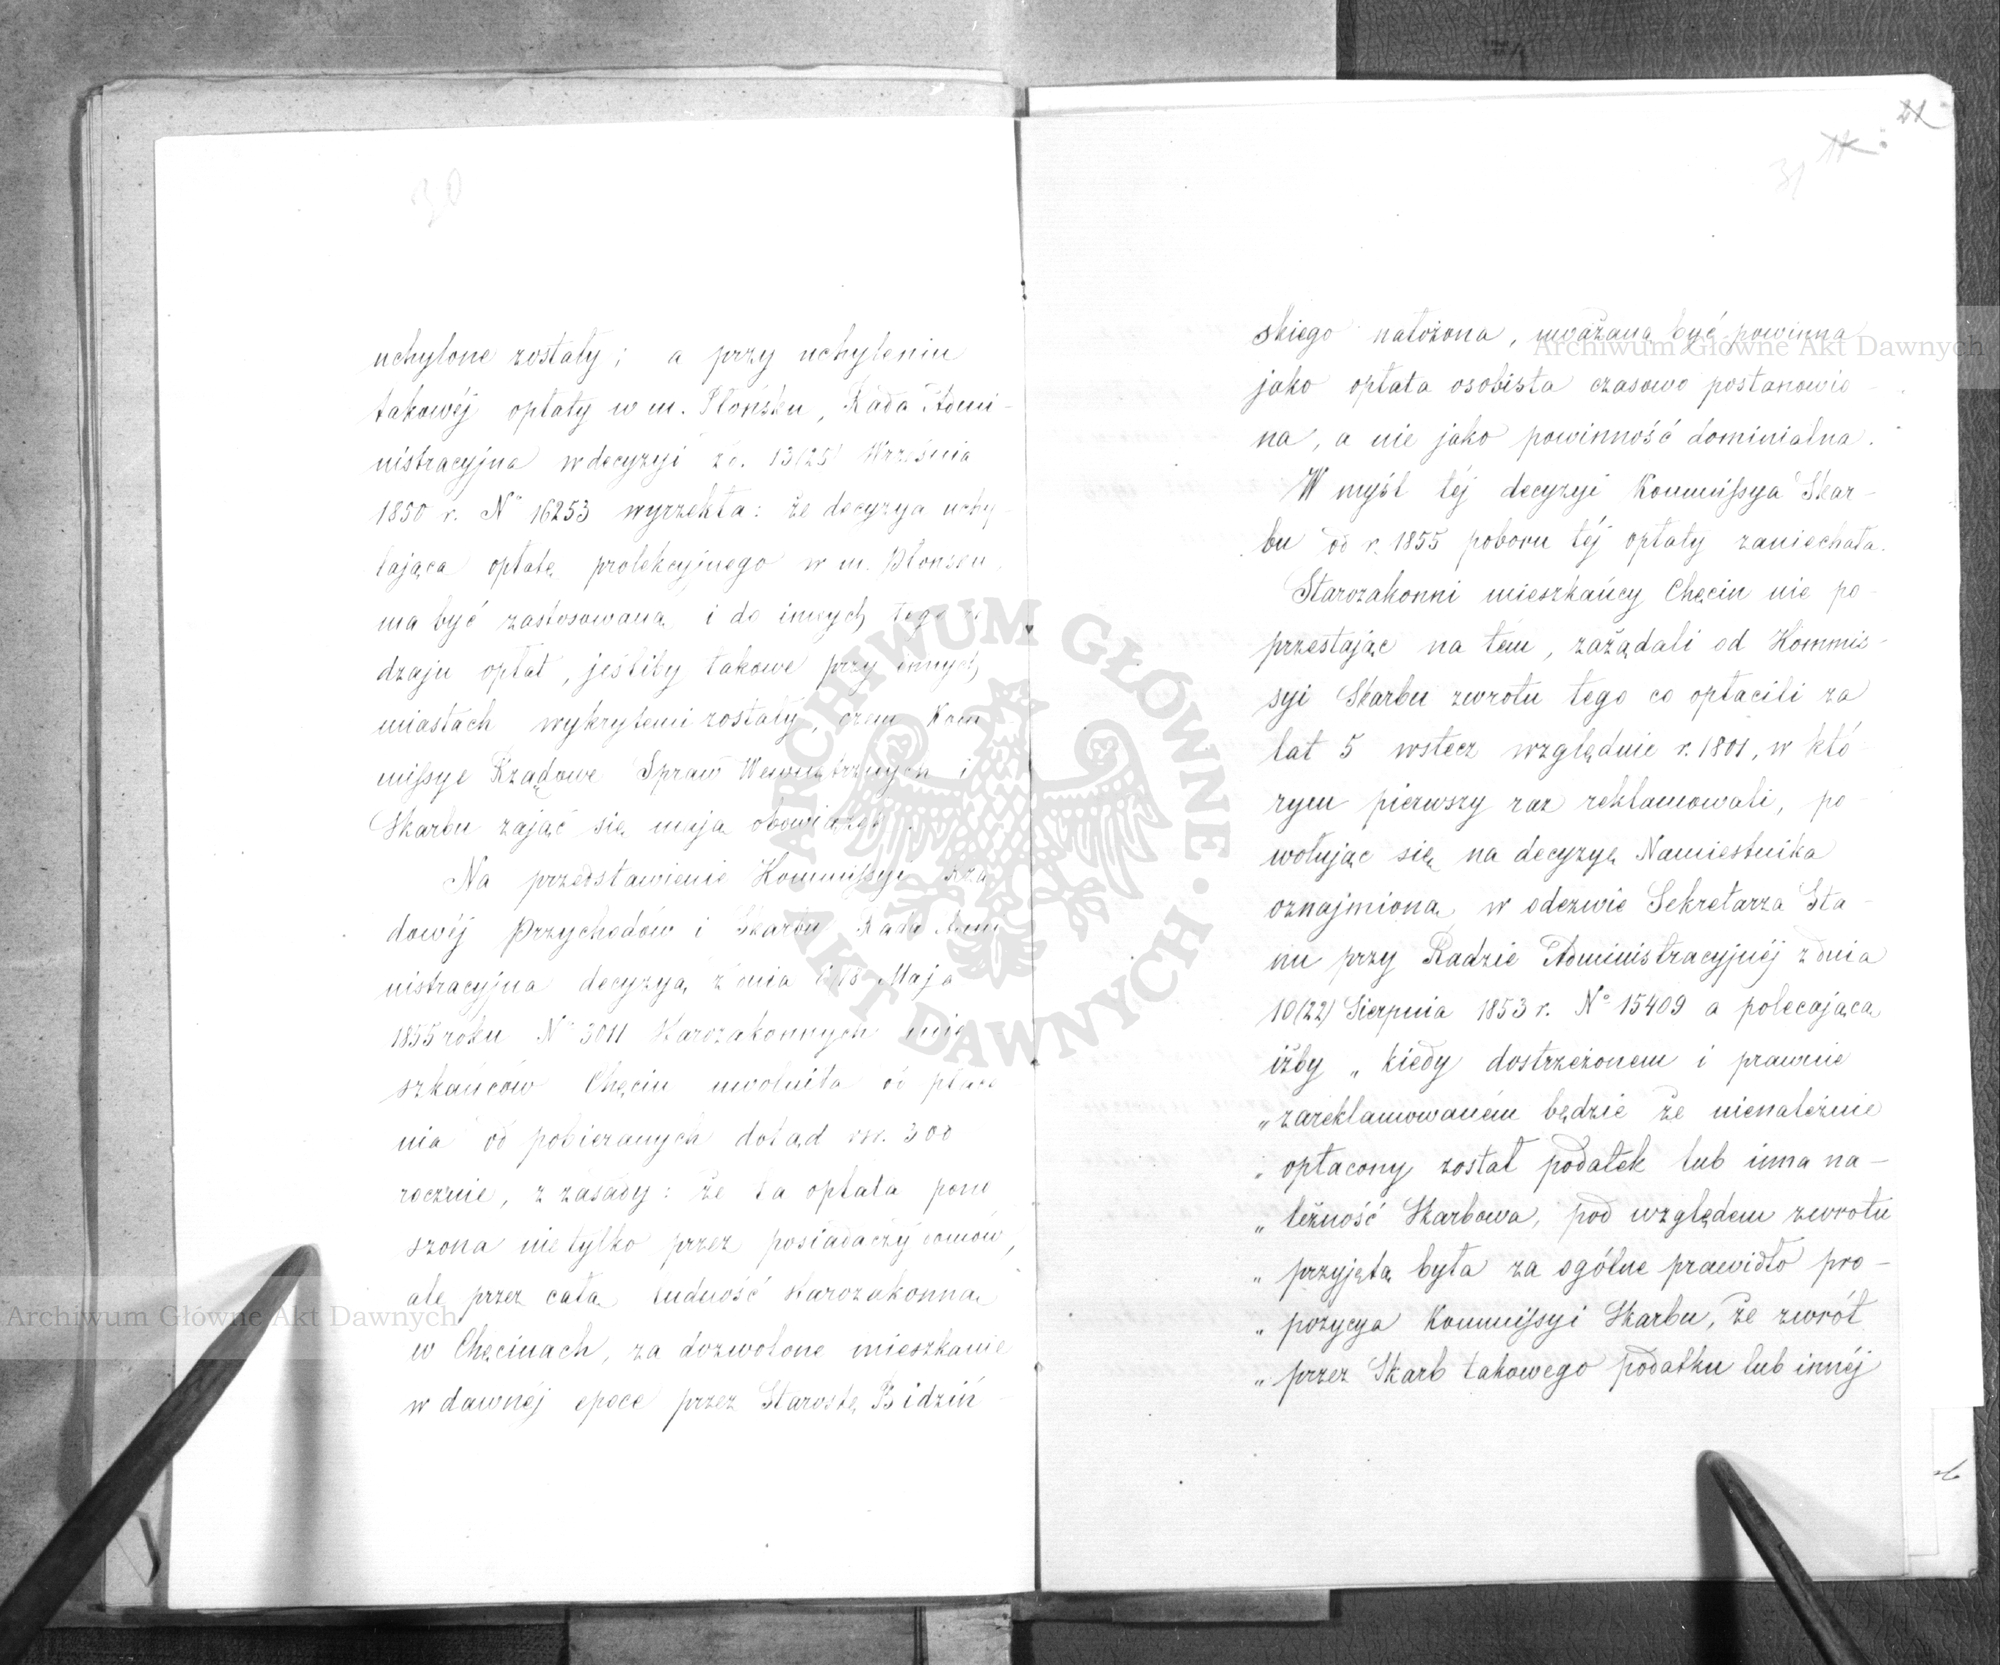 30
uchylone zostały; a przy uchyleniu
takowéj opłaty w m. Płońsku, Rada Admi-
nistracyjna w decyzyi z d. 13/25 Września
1850 r. N° 16253 wyrzekła: że decyzya uchy-
lająca opłatę protekcyjnego w m. Płońsku,
ma być zastosowaną i do innych tego ro
dzaju opłat, jeśliby takowe przy innych
miastach wykrytemi zostały, czem Kom
missye Rządowe Spraw Wewnętrznych i
Skarbu zająć się mają obowiązek.
Na przedstawienie Kommissyi Rzą
dowéj Przychodów i Skarbu Rada Admi
nistracyjna decyzyą z dnia Maja
1855 roku N° 3011 starozakonnych mie
szkańców Chęcin uwolniła od płace
nia od pobieranych dotąd rsr. 300
rocznie, z zasady: że ta opłata pono
szona nietylko przez posiadaczy domów,
ale przez całą ludność starozakonną
w Chęcinach, za dozwolone mieszkanie
w dawnéj epoce przez Starostę Bidziń-
21
31
skiego nałożona, uważaną być powinna
jako opłata osobista czasowo postanowio-
na, a nie jako powinność dominialna.
W myśl téj decyzyi Kommissya Skar-
bu od r. 1855 poboru téj opłaty zaniechała.
Starozakonni mieszkańcy Chęcin nie po-
przestając na tém, zażądali od Kommis-
syi Skarbu zwrotu tego co opłacili za
lat 5 wstecz względnie r. 1801, w któ-
rym pierwszy raz reklamowali, po-
wołując się na decyzyę Namiestnika
oznajmioną w odezwie Sekretarza Sta-
nu przy Radzie Administracyjnéj z dnia
10/22 Sierpnia 1853 r. N° 15409 a polecającą
iżby „kiedy dostrzeżonem i prawnie
„zareklamowaném będzie że nienależnie
„opłacony został podatek lub inna na-
„leżność Skarbowa, pod względem zwrotu
„przyjętą była za ogólne prawidło pro-
„pozycya Kommissyi Skarbu, że zwrót
„przez Skarb takowego podatku lub innéj
Archiwum Główne Akt Dawnych
Archiwum Główne Akt Dawnych
ARCHIWUM GŁÓWNE AKT DAWNYCH